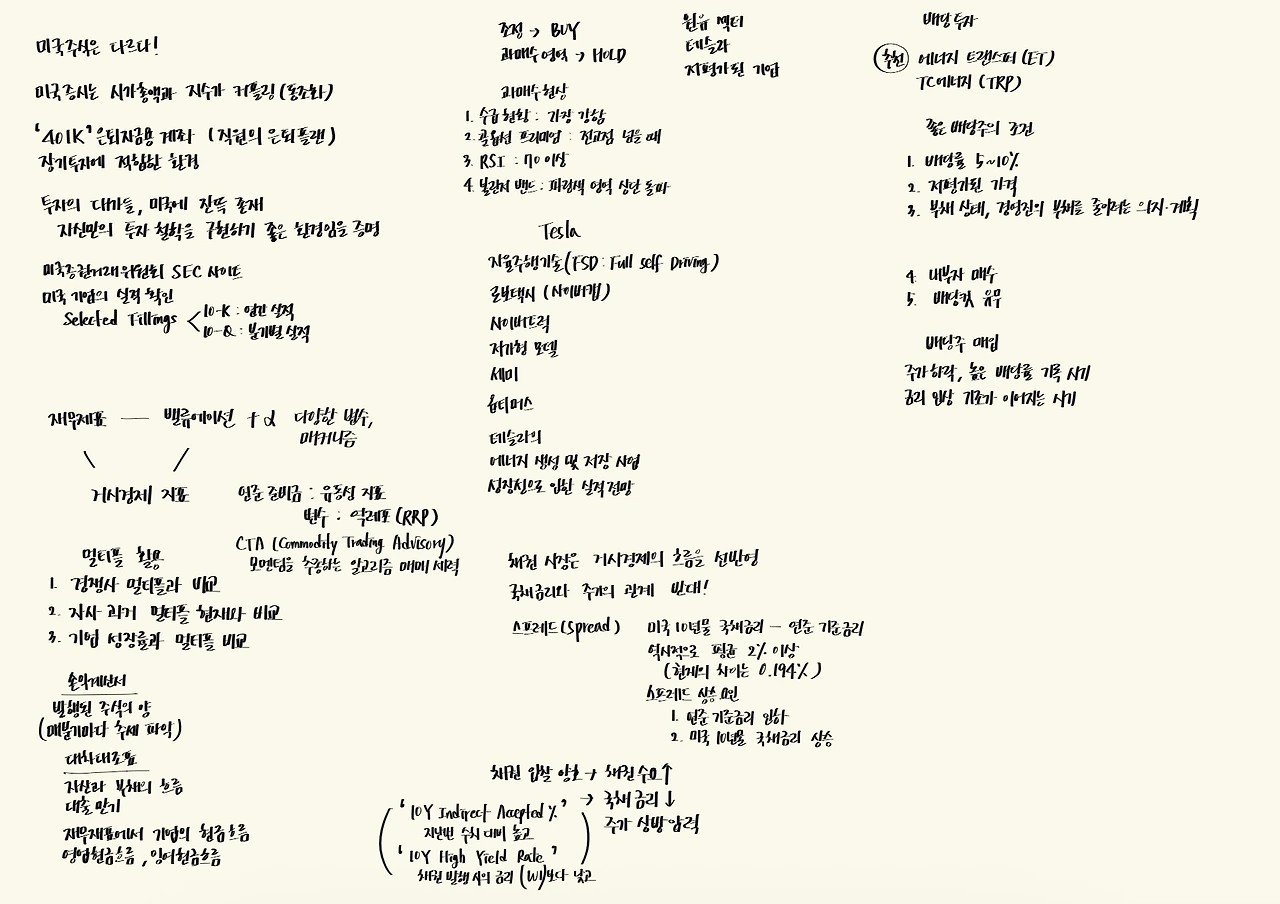 미국주식은 다르다!
미국증시는 시가총액과 지수가 커플링 (동조화)
'401K' 은퇴자금용 계좌 (직원의 은퇴플랜)
장기투자에 적합한 환경
투자의 대가들, 미국에 잔뜩 존재
자신만의 투자 철학을 구현하기 좋은 환경임을 증명
미국증권거래위원회 SEC 사이트
미국 기업의 실적 확인
Selected Fillings
10-K : 연간 실적
10-Q : 분기별 실적
재무제표 — 밸류에이션 + α 다양한 변수,
매커니즘
거시경제 지표
연준 준비금 : 유동성 지표
변수 : 역레포 (RRP)
CTA (Commodity Trading Advisory)
모멘텀을 추종하는 알고리즘 매매 세력
멀티플 활용
1. 경쟁사 멀티플과 비교
2. 자사 과거 멀티플 현재와 비교
3. 기업 성장률과 멀티플 비교
손익계산서
발행된 주식의 양
(매분기마다 추세 파악)
대차대조표
자산과 부채의 흐름
대출 만기
재무재표에서 기업의 현금흐름
영업현금흐름, 잉여현금흐름
조정 → BUY
과매수영역 → HOLD
원유 섹터
테슬라
저평가된 기업
과매수현상
1. 수급현황 : 가장 강함
2. 콜옵션 프리미엄 : 전고점 넘을 때
3. RSI : 70 이상
4. 볼린저 밴드 : 파란색 영역 상단 돌파
Tesla
자율주행기술 (FSD : Full self Driving)
로보택시 (사이버캡)
사이버트럭
저가형 모델
세미
옵티머스
테슬라의
에너지 생성 및 저장 사업
성장성으로 인한 실적전망
채권 시장은 거시경제의 흐름을 선반영
국채금리와 주가의 관계 반대!
스프레드 (Spread) 미국 10년물 국채금리 - 연준 기준금리
역사적으로 평균 2% 이상
(현재의 차이는 0.194%)
스프레드 상승 요인
1. 연준 기준금리 인하
2. 미국 10년물 국채금리 상승
채권 입찰 양호 → 채권수요↑
→ 국채 금리↓
주가 상방 압력
'10Y Indirect Accepted %'
지난번 수치 대비 높고
'10Y High Yield Rate'
채권 발행 시의 금리 (WI)보다 낮고
배당 투자
추천 에너지 트랜스퍼 (ET)
TC에너지 (TRP)
좋은 배당주의 조건
1. 배당률 5~10%
2. 저평가된 가격
3. 부채 상태, 경영진의 부채를 줄이려는 의지·계획
4. 내부자 매수
5. 배당컷 유무
배당주 매입
주가 하락, 높은 배당률 기록 시기
금리 인상 기조가 이어지는 시기